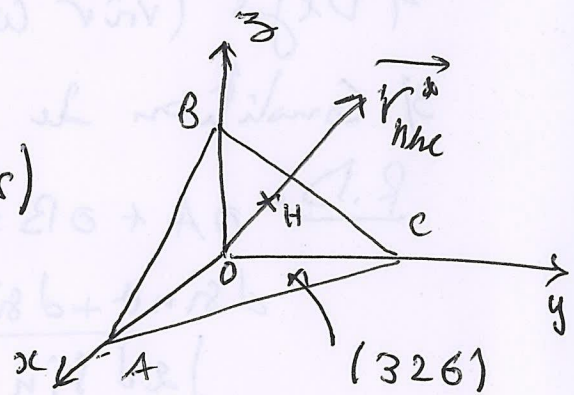 z
r*hkl
B
s)
H
C
O
y
x
A
(326)